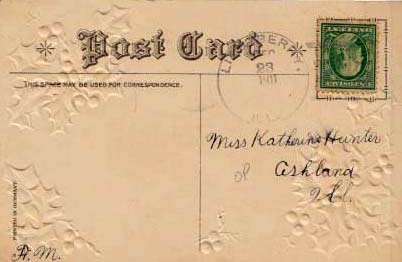 Post Card
DEC
23
1911
THIS SPACE MAY BE USED FOR CORRESPONDENCE.
Miss Katherine Hunter
Ashland
Ill.
PRINTED IN GERMANY.
A. M.